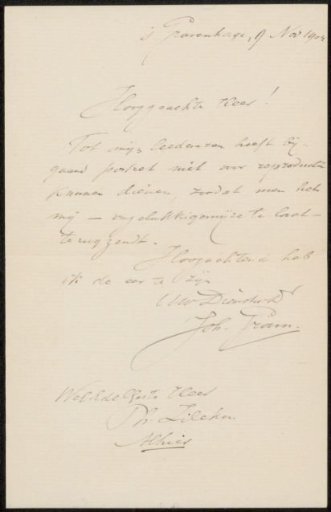 's Gravenhage, 9 Nov. 1904
Hooggeachte Heer!
Tot mijn leedwezen heeft bij-
gaand portret niet voor reproductie
kunnen dienen, zoodat men het
mij – ongelukkigerwijze te laat –
terugzendt.
Hoogachtend heb
ik de eer te zijn
Uw Dienstw. Dr
Joh. Gram.
WelEdelGeb. Heer
Ph. Zilcken
Alhier